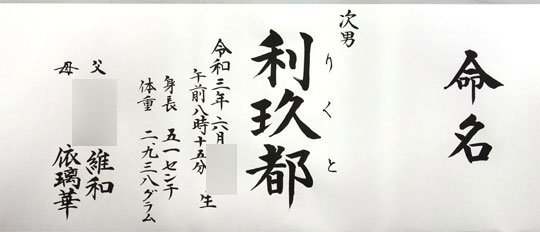 命名
次男
りくと
利玖都
令和三年六月
午前八時十五分
生
身長 五一センチ
体重 二、九三八グラム
父 維和
母 依璃華